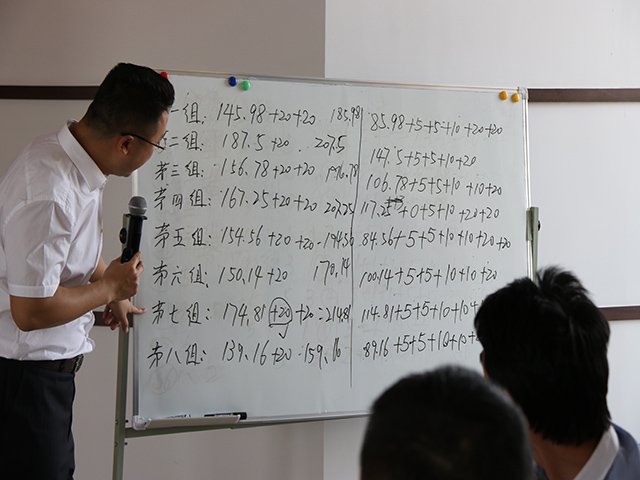 一组: 145.98+20+20 185.98 85.98+5+5+10+20+20
二组: 187.5+20 . 207.5 147.5+5+5+10+20
第三组: 156.78+20+20 196.78 106.78+5+5+10+10+20
第四组: 167.25+20+20 207.25 117.25 +0+5+10+20+20
第五组: 154.56+20+20=194.56 84.56+5+5+10+10+20+20
第六组: 150.14+20 170.14 100.14+5+5+10+10+20
第七组: 174.81+20+20=214.81 114.81+5+5+10+10+
第八组: 139.16+20 . 159.16 89.16+5+5+10+10